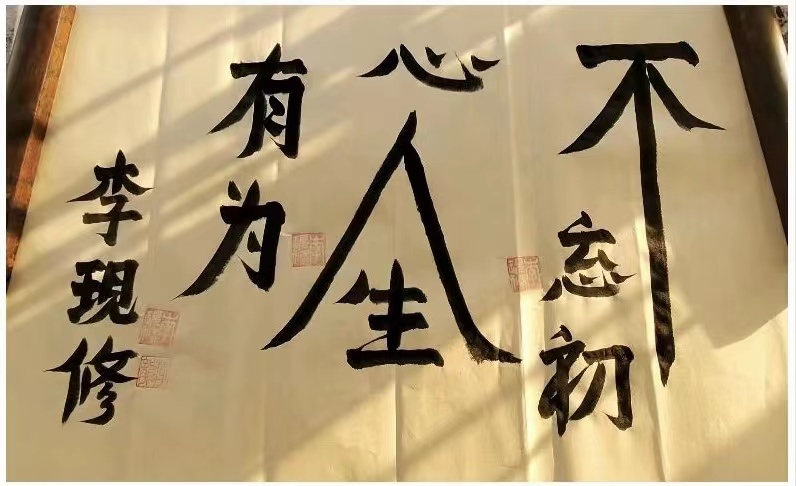 不忘初
心人生
有为
李現修